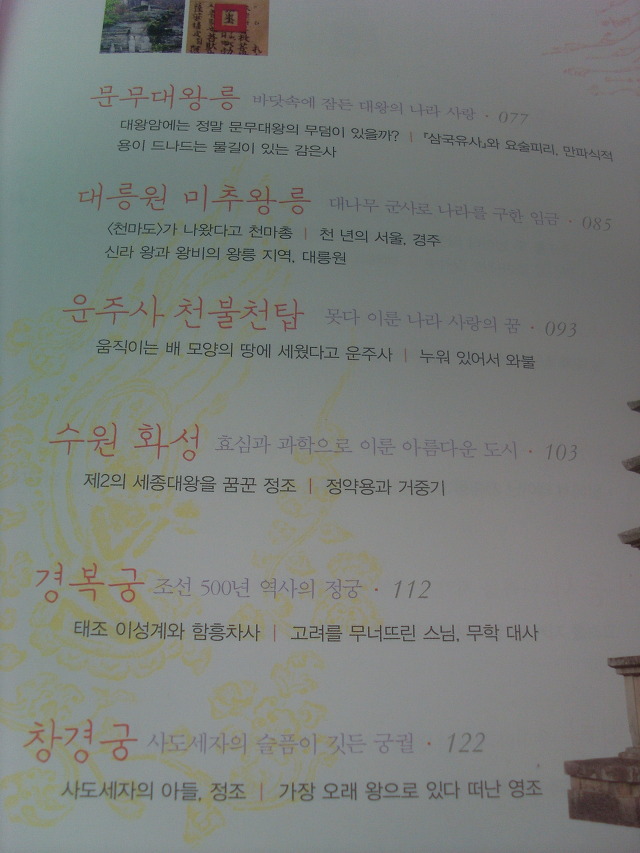 문무대왕릉 바닷속에 잠든 대왕의 나라 사랑 · 077
대왕암에는 정말 문무대왕의 무덤이 있을까? | 『삼국유사』와 요술피리, 만파식적
용이 드나드는 물길이 있는 감은사
대릉원 미추왕릉 대나무 군사로 나라를 구한 임금 · 085
〈천마도〉가 나왔다고 천마총 | 천 년의 서울, 경주
신라 왕과 왕비의 왕릉 지역, 대릉원
운주사 천불천탑 못다 이룬 나라 사랑의 꿈 · 093
움직이는 배 모양의 땅에 세웠다고 운주사 | 누워 있어서 와불
수원 화성 효심과 과학으로 이룬 아름다운 도시 · 103
제2의 세종대왕을 꿈꾼 정조 | 정약용과 거중기
경복궁 조선 500년 역사의 정궁 · 112
태조 이성계와 함흥차사 | 고려를 무너뜨린 스님, 무학 대사
창경궁 사도세자의 슬픔이 깃든 궁궐 · 122
사도세자의 아들, 정조 | 가장 오래 왕으로 있다 떠난 영조